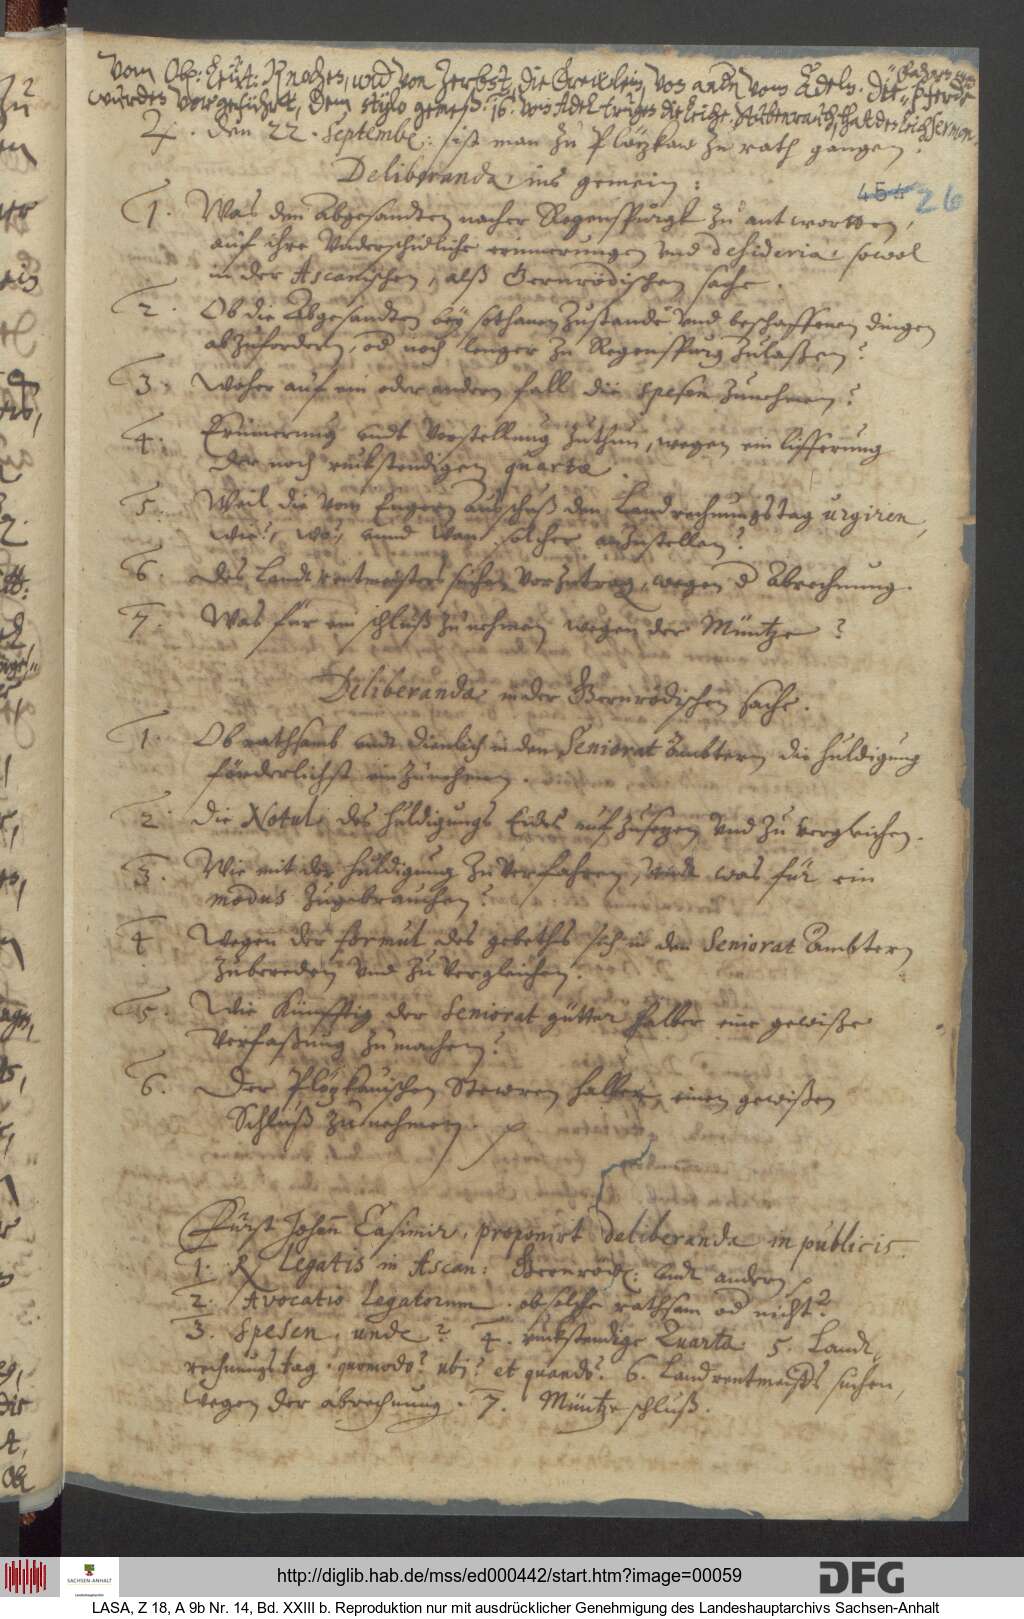 Vom Ob: Leut: Knochen, und von Zerbst, die Frewlein von andn vom Adeln. die Pferde
wurden vorgeführt, dem stylo gemeß. 16 von Adel trugen die leiche. Raubenrauch, that des leich Sermon.
♃. den 22. Septemb: ist man zu Plözkaw zu rath gangen.
Deliberanda ins gemein:
454 26
1. Was den Abgesandten nacher Regenspurgk zu antwortten,
auf ihre Underschidliche erinnerungen und desideria, sowol
in der Ascanischen, alß Gernrödischen sache.
2. Ob die Abgesandten bey sothanen Zustande und beschaffenen dingen
abzufordern, od noch lenger zu Regenspurg zulaßen?
3. Woher auf ein oder andern fall die spesen zunehmen?
4. Erinnerung undt vorstellung zuthun, wegen ein lifferung
der noch rückstendigen quarta.
5. Weil die vom Engern ausschuß den Landrechnungstag urgiren,
wie?, wo?, unnd wan solcher anzustellen?
6. Des Landtrentmeisters suchen vorzutrag, wegen d Abrechnung.
7. Was für ein schluß zu nehmen wegen der Müntze?
Deliberanda in der Gernrödischen sache.
1. Ob rathsamb undt dienlich in den Seniorat Ämbtern die huldigung
förderlichst einzunehmen.
2. Die Notul des huldigungs Eides aufzusezen und zu vergleichen.
3. Wie mit der huldigung zu verfahren, undt was für ein
modus zugebrauchen?
4. Wegen der formul des gebeths sich in den Seniorat Ämbtern
zubereden und zu vergleichen.
5. Wie künfftig der Seniorat gütter halber eine gewiße
verfaßung zu machen?
6. Der Plözkauischen Stewren halber, einen gewißen
Schluß zu nehmen.
Fürst Johann Casimir, proponirt deliberanda in publicis.
1. Legatis in Ascan: Gernröd: undt andern
2. Avocatio Legatorum. ob solche rathsam od nicht?
3. Spesen, unde? 4. rückstendige Quarta 5. Landt-
rechnungs tag. quomodo? ubi? et quando? 6. Landrentmeisters suchen,
wegen der abrechnung. 7. Müntze schluß.
http://diglib.hab.de/mss/ed000442/start.htm?image=00059
SACHSEN-ANHALT
DFG
LASA, Z 18, A 9b Nr. 14, Bd. XXIII b. Reproduktion nur mit ausdrücklicher Genehmigung des Landeshauptarchivs Sachsen-Anhalt